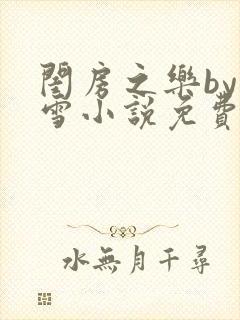 閨房之樂by
雪小說免費
水無月千尋